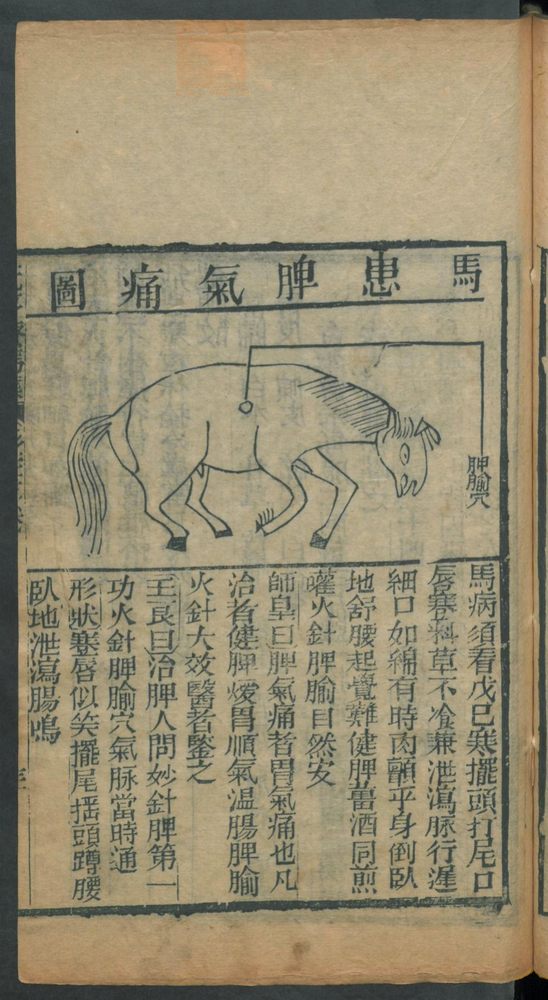 馬患脾氣痛圖
脾腧穴
馬病須看戊巳寒擺頭打尾口
唇蹇料草不飡兼泄瀉脉行遲
細口如綿有時肉顫平身倒臥
地舒腰起覺難健脾薑酒同煎
㬉火針脾腧自然安
師皇曰脾氣痛者胃氣痛也凡
治者健脾煖胃順氣温腸脾腧
火針大效醫者鑒之
王良曰治脾人問妙針脾第一
功火針脾腧穴氣脉當時通
形狀蹇唇似笑擺尾揺頭蹲腰
臥地泄瀉腸鳴